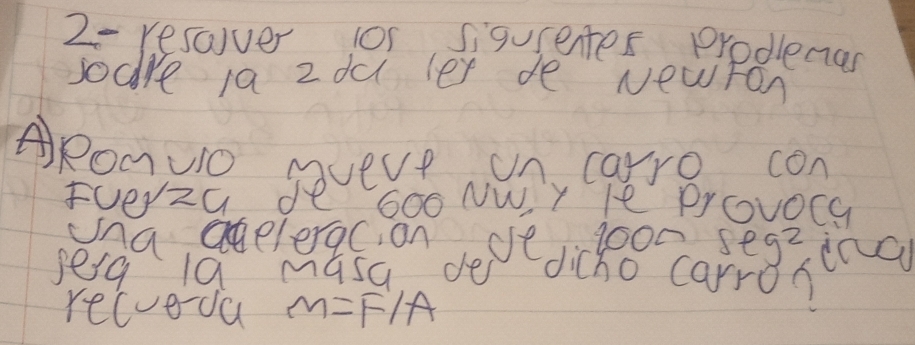 2.- resolver los siguientes prodlemas
sodre la 2da ley de Newton
A) Romulo mueve un carro con
Fuerza de 600 NW, y le provoca
una aceleracion de 100m seg2 ¿cual
sera la masa de dicho carro?
recuerda m=F/A